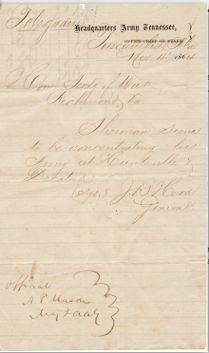 Telegram
Headquarters Army Tennessee,
Tuscumbia, Ala
Nov 12 1864
Secty of War
Richmond, Va
Sherman seems
to be concentrating his
army at Huntsville &
Pulaski
J B Hood
General
Official
A P Mason
Maj & AAG